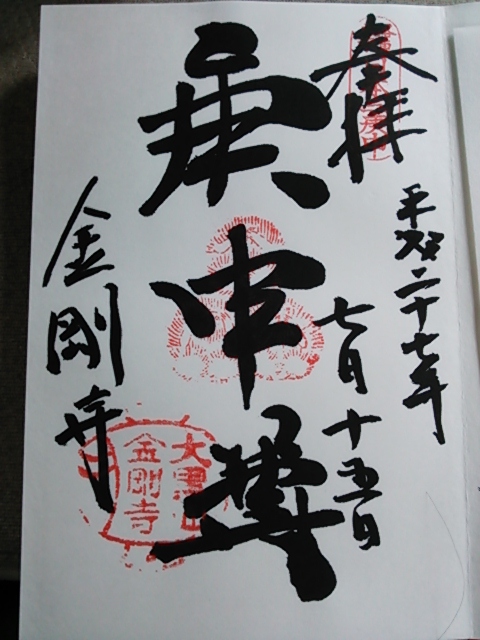 奉拝
平成二十七年
七月十五日
庚申尊
金剛寺
大黒山
金剛寺